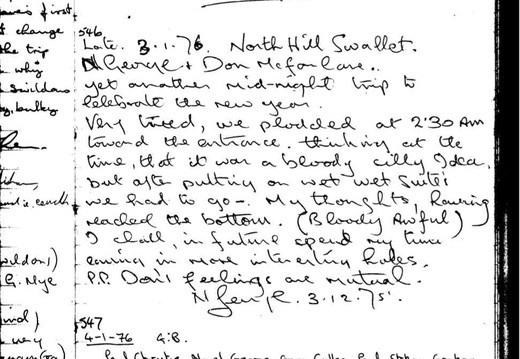 ave's first
t change
the trip
why
Smildons
546
Late. 3.1.76. North Hill Swallet.
N George + Don McFarlane.
yet another mid-night trip to
celebrate the new year.
Very tired, we plodded at 2'30 AM
toward the entrance. thinking at the
time, that it was a bloody cilly Idea,
but after putting on wet wet suite's
we had to go-. My thoughts, having
reached the bottom. (Bloody Awful)
I shall, in future spend my time
caving in more interesting holes.
P.P. Don's feelings are mutual.
N George. 3.12.75.
G. Nye
547
4-1-76 G.B.
very